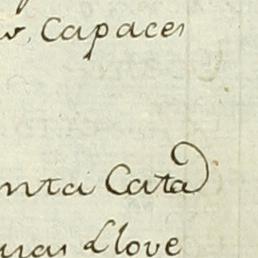 Capaces
nta Catað
uas Llove